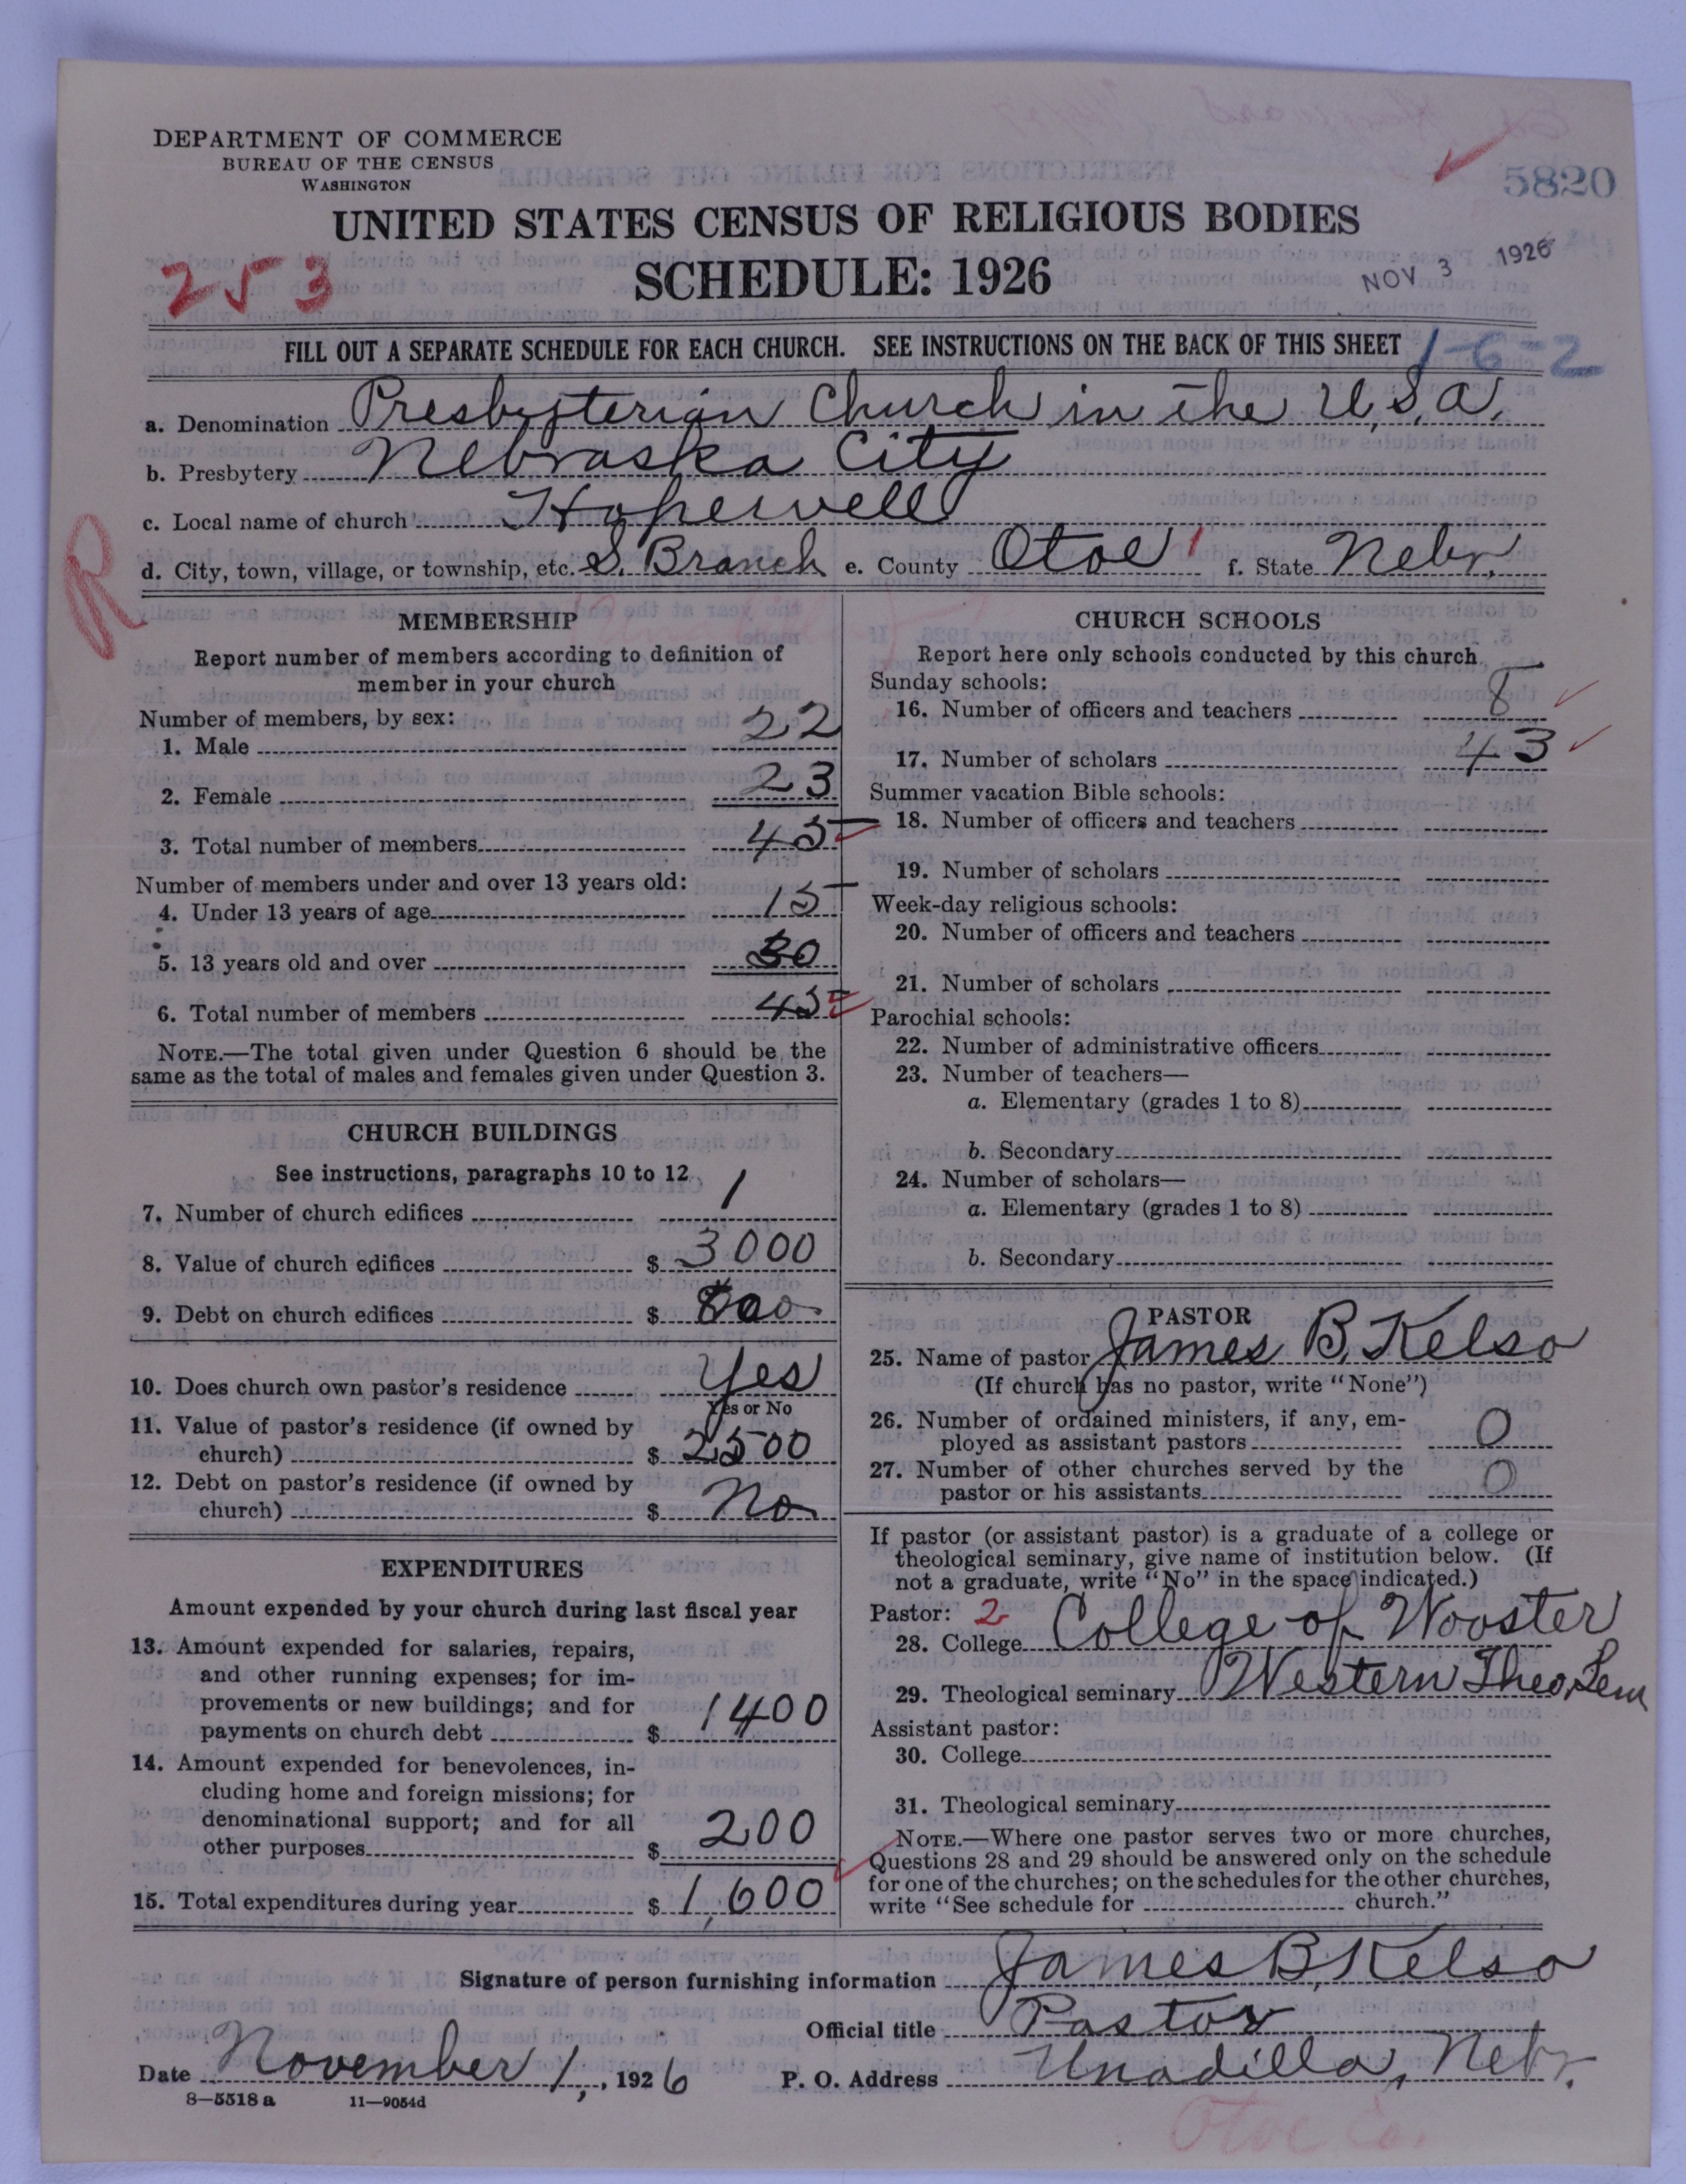 DEPARTMENT OF COMMERCE
BUREAU OF THE CENSUS
WASHINGTON
5820
UNITED STATES CENSUS OF RELIGIOUS BODIES
SCHEDULE: 1926
253
NOV 3 1926
FILL OUT A SEPARATE SCHEDULE FOR EACH CHURCH. SEE INSTRUCTIONS ON THE BACK OF THIS SHEET
1-6-2
a. Denomination Presbyterian Church in the U.S.A.
b. Presbytery Nebraska City
c. Local name of church Hopewell
R
d. City, town, village, or township, etc. S. Branch e. County Otoe f. State Nebr.
MEMBERSHIP
Report number of members according to definition of
member in your church
Number of members, by sex:
1. Male 22
2. Female 23
3. Total number of members 45
Number of members under and over 13 years old:
4. Under 13 years of age 15
5. 13 years old and over 30
6. Total number of members 45
NOTE.—The total given under Question 6 should be the
same as the total of males and females given under Question 3.
CHURCH BUILDINGS
See instructions, paragraphs 10 to 12
7. Number of church edifices 1
8. Value of church edifices $ 3000
9. Debt on church edifices $ 800
10. Does church own pastor's residence Yes
Yes or No
11. Value of pastor's residence (if owned by
church) $ 2500
12. Debt on pastor's residence (if owned by
church) $ No
EXPENDITURES
Amount expended by your church during last fiscal year
13. Amount expended for salaries, repairs,
and other running expenses; for im-
provements or new buildings; and for
payments on church debt $ 1400
14. Amount expended for benevolences, in-
cluding home and foreign missions; for
denominational support; and for all
other purposes $ 200
15. Total expenditures during year $ 1,600
CHURCH SCHOOLS
Report here only schools conducted by this church
Sunday schools:
16. Number of officers and teachers 8
17. Number of scholars 43
Summer vacation Bible schools:
18. Number of officers and teachers
19. Number of scholars
Week-day religious schools:
20. Number of officers and teachers
21. Number of scholars
Parochial schools:
22. Number of administrative officers
23. Number of teachers—
a. Elementary (grades 1 to 8)
b. Secondary
24. Number of scholars—
a. Elementary (grades 1 to 8)
b. Secondary
PASTOR
25. Name of pastor James B. Kelso
(If church has no pastor, write "None")
26. Number of ordained ministers, if any, em-
ployed as assistant pastors 0
27. Number of other churches served by the
pastor or his assistants 0
If pastor (or assistant pastor) is a graduate of a college or
theological seminary, give name of institution below. (If
not a graduate, write "No" in the space indicated.)
Pastor: 2
28. College College of Wooster
29. Theological seminary Western Theo. Sem
Assistant pastor:
30. College
31. Theological seminary
NOTE.—Where one pastor serves two or more churches,
Questions 28 and 29 should be answered only on the schedule
for one of the churches; on the schedules for the other churches,
write "See schedule for church."
Signature of person furnishing information James B. Kelso
Official title Pastor
Date November 1, 1926 P. O. Address Unadilla, Nebr.
8—5518 a 11—9054d
Otoe Co.